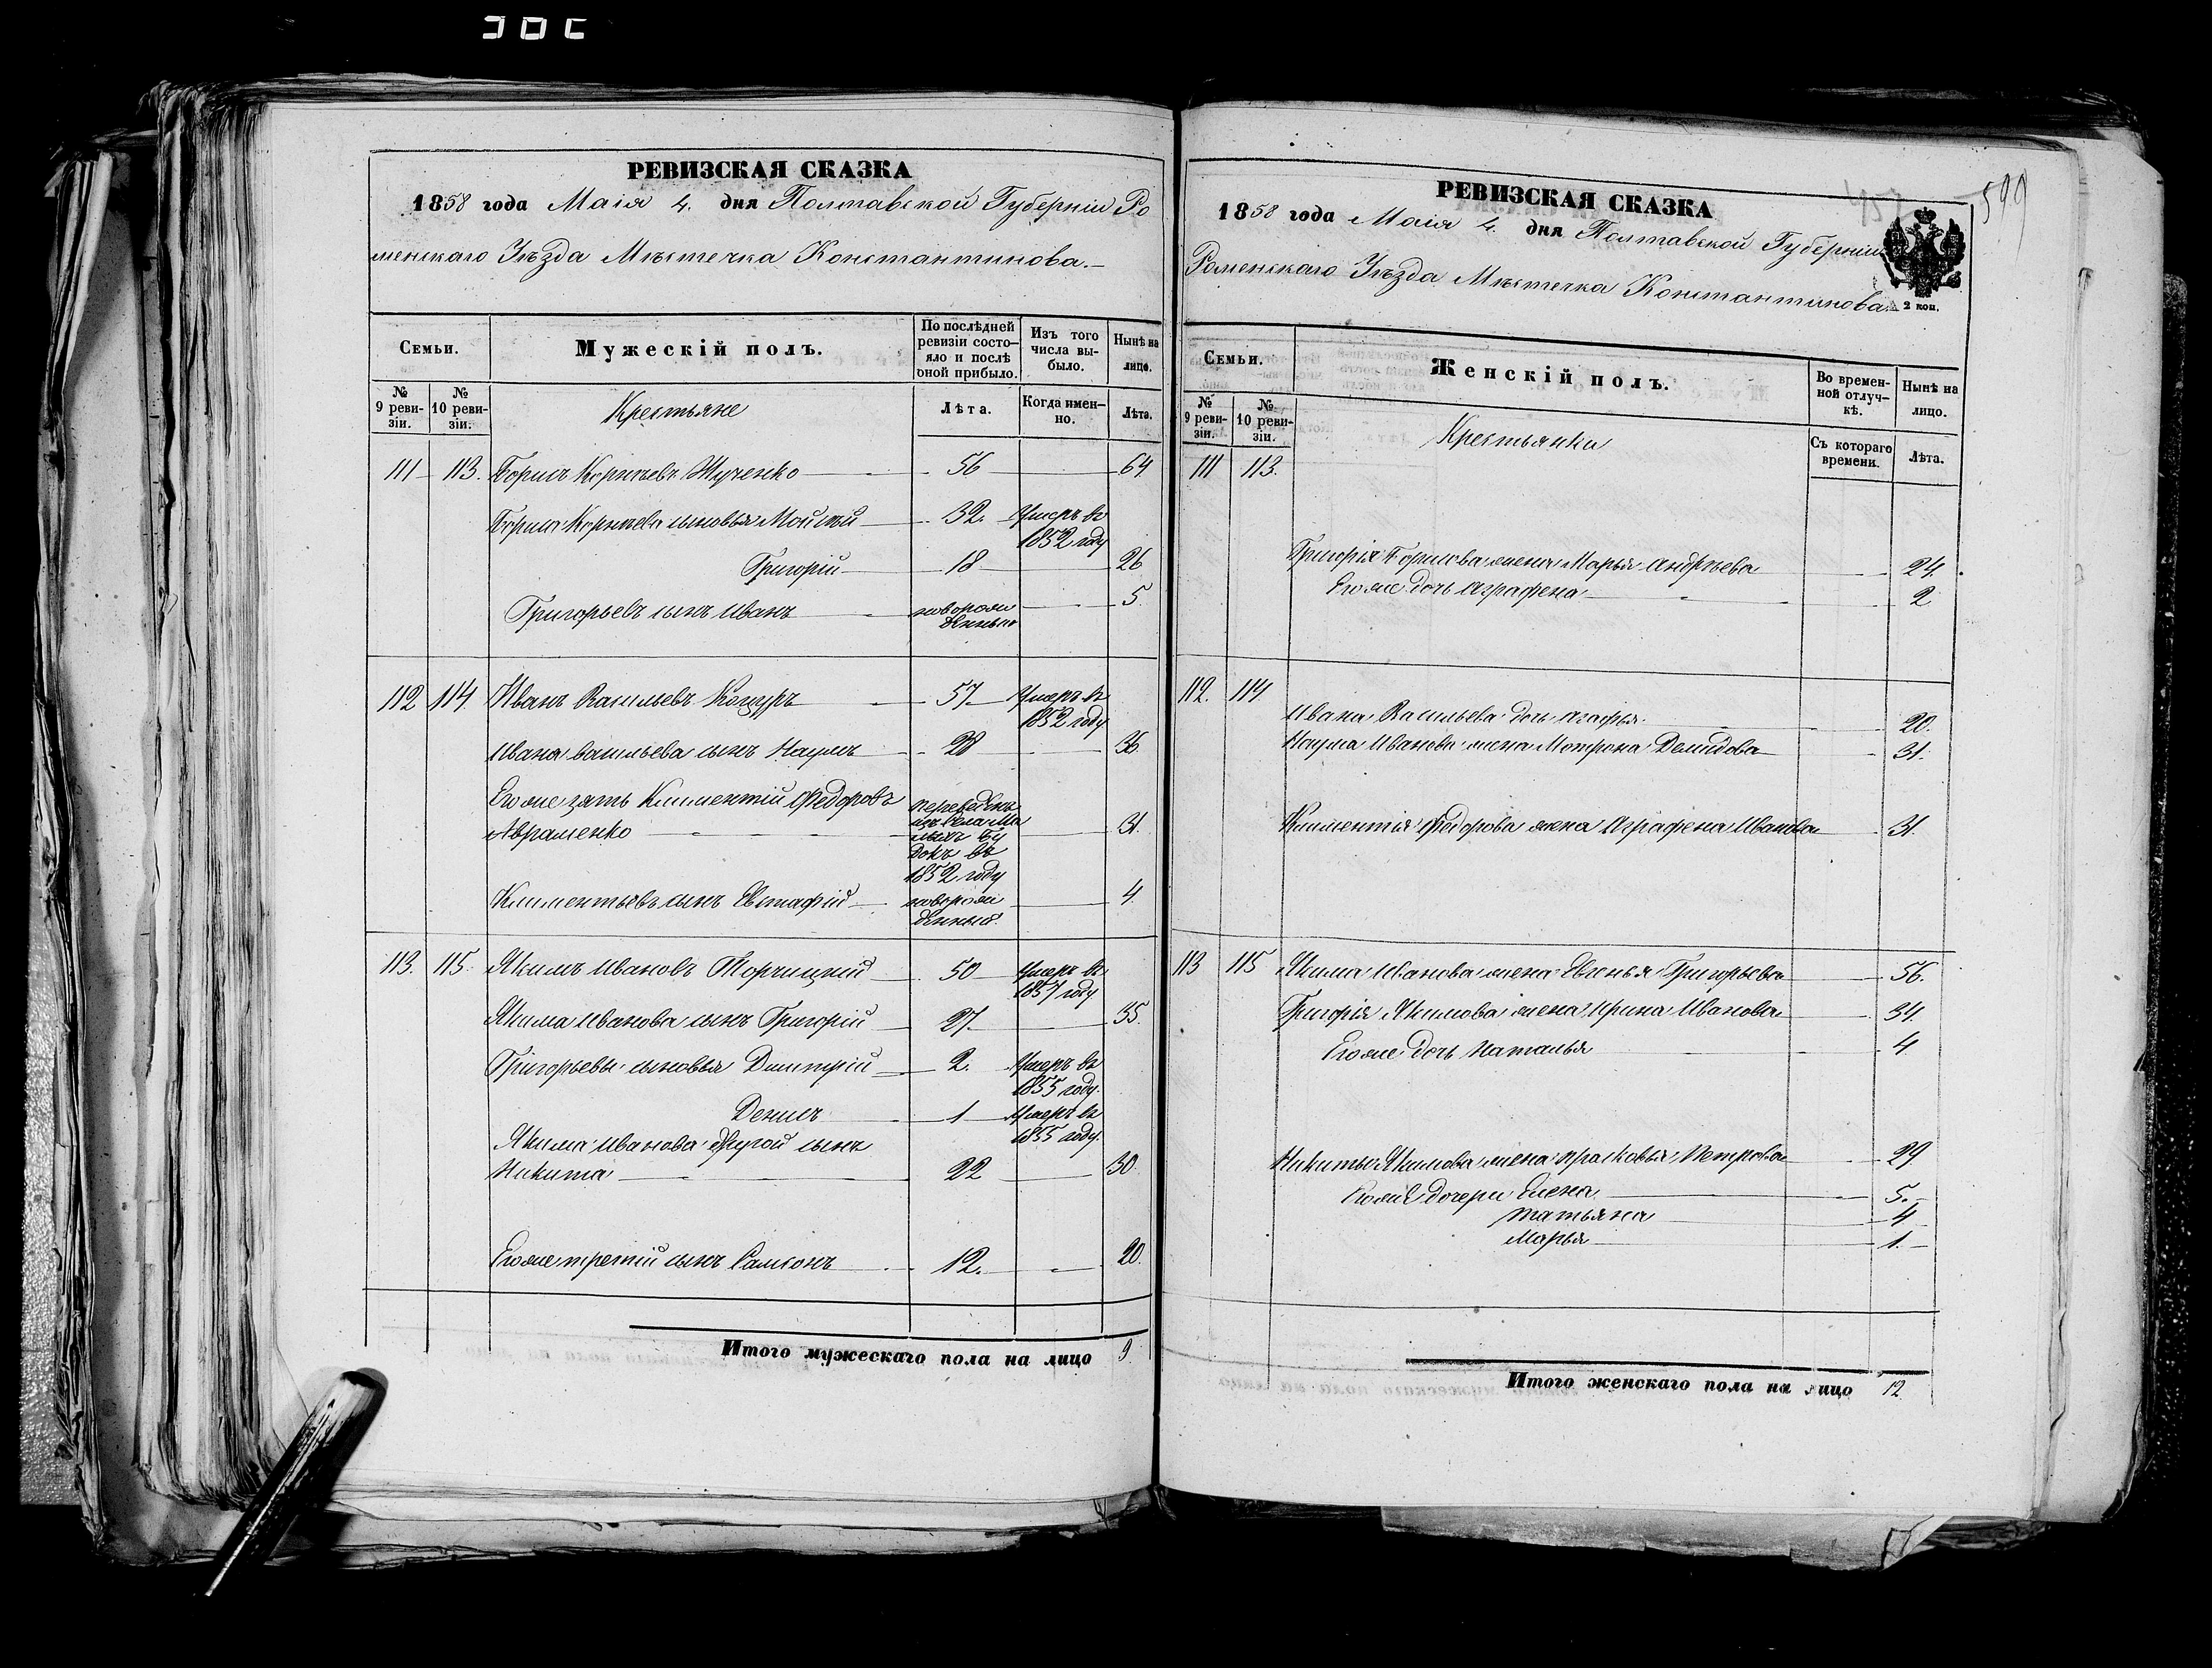 РЕВИЗСКАЯ СКАЗКА
1858 года Маія 4. дня Полтавской Губерніи Ро
менскаго Уѣзда Мѣстечка Константинова.
Семьи.
Мужескій полъ.
По послѣдней ревизіи состо-яло и послѣ оной прибыло.
Изъ того числа вы-было.
Нынѣ на лицо.
№ 9 реви-зіи.
№ 10 реви-зіи.
Крестьяне
Лѣта.
Когда имен-но.
Лѣта.
111 113. Борисъ Корнѣевъ 56 64
Бориса Корнѣева сыновья Моисей 32. Умеръ въ
1852 году
Григорій 18 26
Григорьевъ сынъ Иванъ новорож 5.
денный
112 114. Иванъ Васильевъ Коцуръ 57 Умеръ въ
1852 году
Ивана Васильева сынъ Наумъ 28 36
Егоже зять Климентій Федоровъ переведенъ
Авраменко изъ села Ма 31.
лыхъ Бу
докъ въ
1852 году
Климентьевъ сынъ Евстафій новорож 4
денный
113. 115. Якимъ Ивановъ Торчицкій 50 Умеръ въ
1857 году
Якима Иванова сынъ Григорій 27 35.
Григорьевы сыновья Дмитрій 2. Умеръ въ
1855 году.
Денисъ 1 Умеръ въ
1855 году.
Якима Иванова другой сынъ
Никита 22 30.
Егоже третій сынъ Самсонъ 12. 20.
Итого мужескаго пола на лицо 9
РЕВИЗСКАЯ СКАЗКА
1858 года Маія 4. дня Полтавской Губерніи
Роменскаго Уѣзда Мѣстечка Константинова.
2 коп.
Семьи.
Женскій полъ.
Во времен-ной отлуч-кѣ.
Нынѣ на лицо.
№ 9 реви-зіи.
№ 10 реви-зіи.
Крестьянки
Съ котораго времени.
Лѣта.
111 113.
Григорія Борисова жена Марья Андрѣева 24.
Егоже дочь Аграфена 2
112. 114
Ивана Васильева дочь Агафья 20.
Наума Иванова жена Мотрона Демидова 31.
Климентія Федорова жена Аграфена Иванова 31.
113 115 Якима Иванова жена Евгенья Григорьева 56.
Григорія Якимова жена Ирина Иванова 34
Егоже дочь Наталья 4
Никиты Якимова жена Прасковья Петрова 29
Егоже дочери Елена 5.
Татьяна 4
Марья 1.
Итого женскаго пола на лицо 12